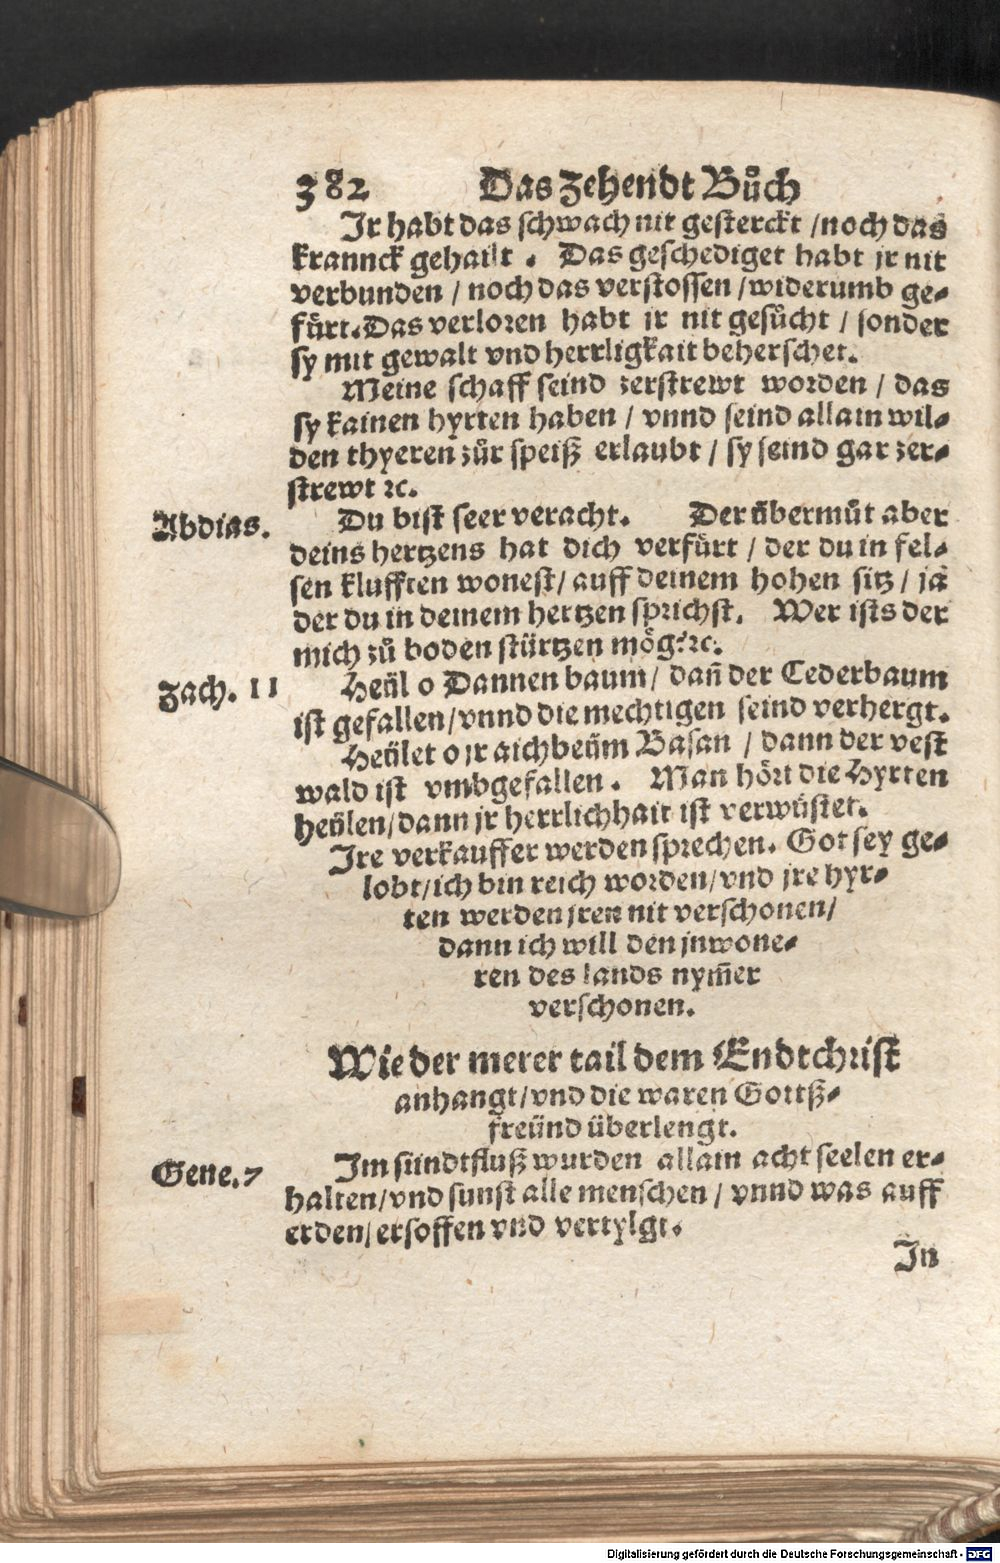 382 Das Zehendt Bůch
Ir habt das schwach nit gesterckt / noch das
kranck gehailt . Das geschediget habt jr nit
verbunden / noch das verstossen / widerumb ge-
fůrt. Das verloren habt jr nit gesůcht / sonder
sy mit gewalt vnd herrligkait beherschet.
Meine schaff seind zerstrewt worden / das
sy kainen hyrten haben / vnnd seind allain wil-
den thyeren zůr speiß erlaubt / sy seind gar zer-
strewt ꝛc.
Abdias. Du bist seer veracht. Der übermůt aber
deins hertzens hat dich verfůrt / der du in fel-
sen klufften wonest / auff deinem hohen sitz / ja
der du in deinem hertzen sprichst. Wer ists der
mich zů boden stürtzen mög ꝛc.
Zach. 11 Heül o Dannen baum / dañ der Cederbaum
ist gefallen / vnnd die mechtigen seind verhergt.
Heület o jr aichbeüm Basan / dann der vest
wald ist vmbgefallen . Man hört die Hyrten
heülen / dann jr herrlichhait ist verwüstet.
Ire verkauffer werden sprechen. Got sey ge-
lobt / ich bin reich worden / vnd jre hyr-
ten werden jren nit verschonen /
dann ich will den jnwone-
ren des lands nym̃er
verschonen.
Wie der merer tail dem Endtchrist
anhangt / vnd die waren Gottß-
freünd überlengt.
Gene. 7 Im sündtfluß wurden allain acht seelen er-
halten / vnd sunst alle menschen / vnnd was auff
erden / ersoffen vnd vertylgt.
In
Digitalisierung gefördert durch die Deutsche Forschungsgemeinschaft - DFG